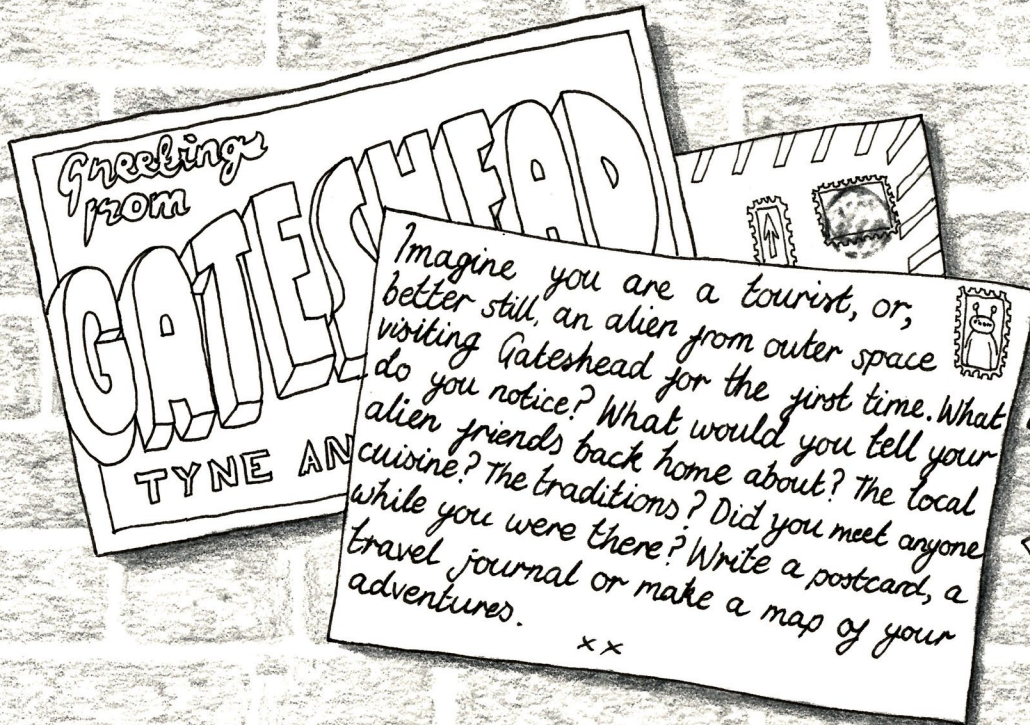 Greetings
from
GATESHEAD
TYNE AN
Imagine you are a tourist, or,
better still, an alien from outer space
visiting Gateshead for the first time. What
do you notice? What would you tell your
alien friends back home about? The local
cuisine? The traditions? Did you meet anyone
while you were there? Write a postcard, a
travel journal or make a map of your
adventures.
xx